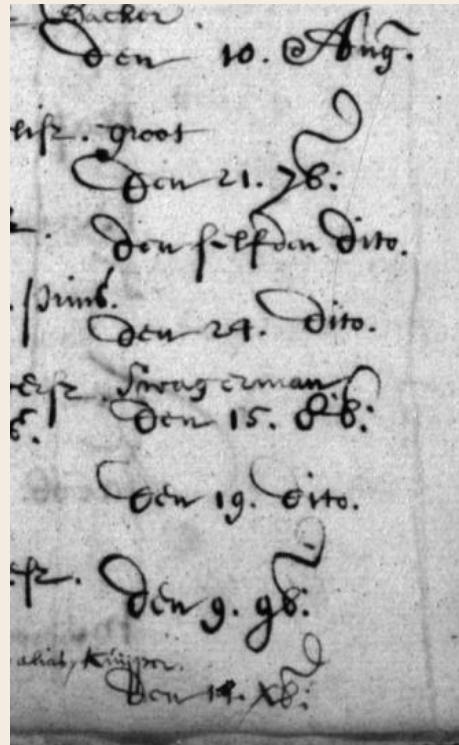 Backer
den 10. Aug.
groot
den 21. 7b:
den selfden dito.
Prins.
den 24. dito.
Swagerman
den 15. 8b:
den 19. dito.
den 9. 9b:
alias, Kuijper.
den 14. Xb: